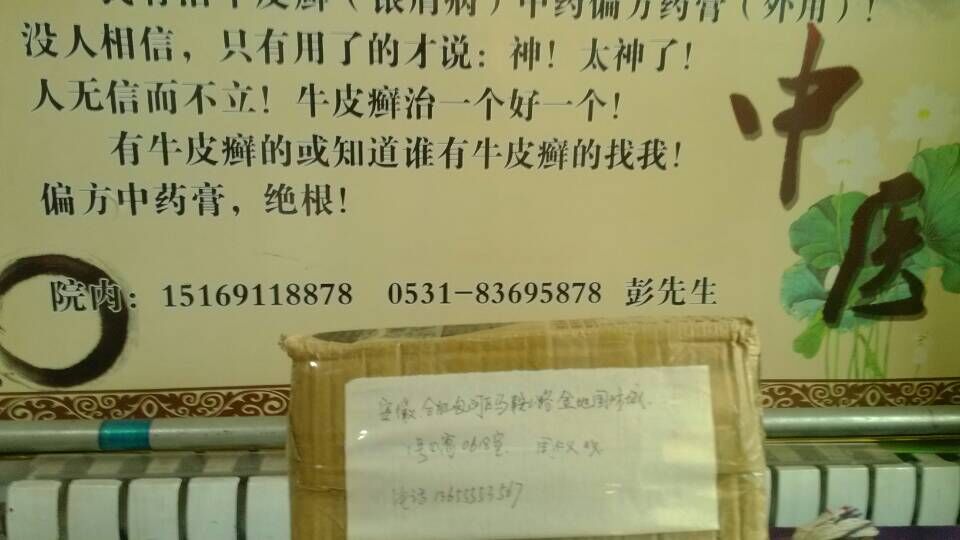 我有治牛皮癣（银屑病）中药偏方药膏（外用）！
没人相信，只有用了的才说：神！太神了！
人无信而不立！牛皮癣治一个好一个！
有牛皮癣的或知道谁有牛皮癣的找我！
偏方中药膏，绝根！
院内：15169118878 0531-83695878 彭先生
中医
安徽合肥包河区马鞍山路金地国际城
电话